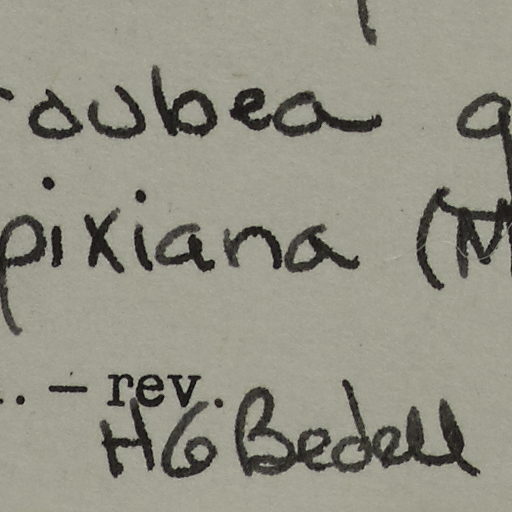 roubea g
pixiana (M
. — rev.
HG Bedell